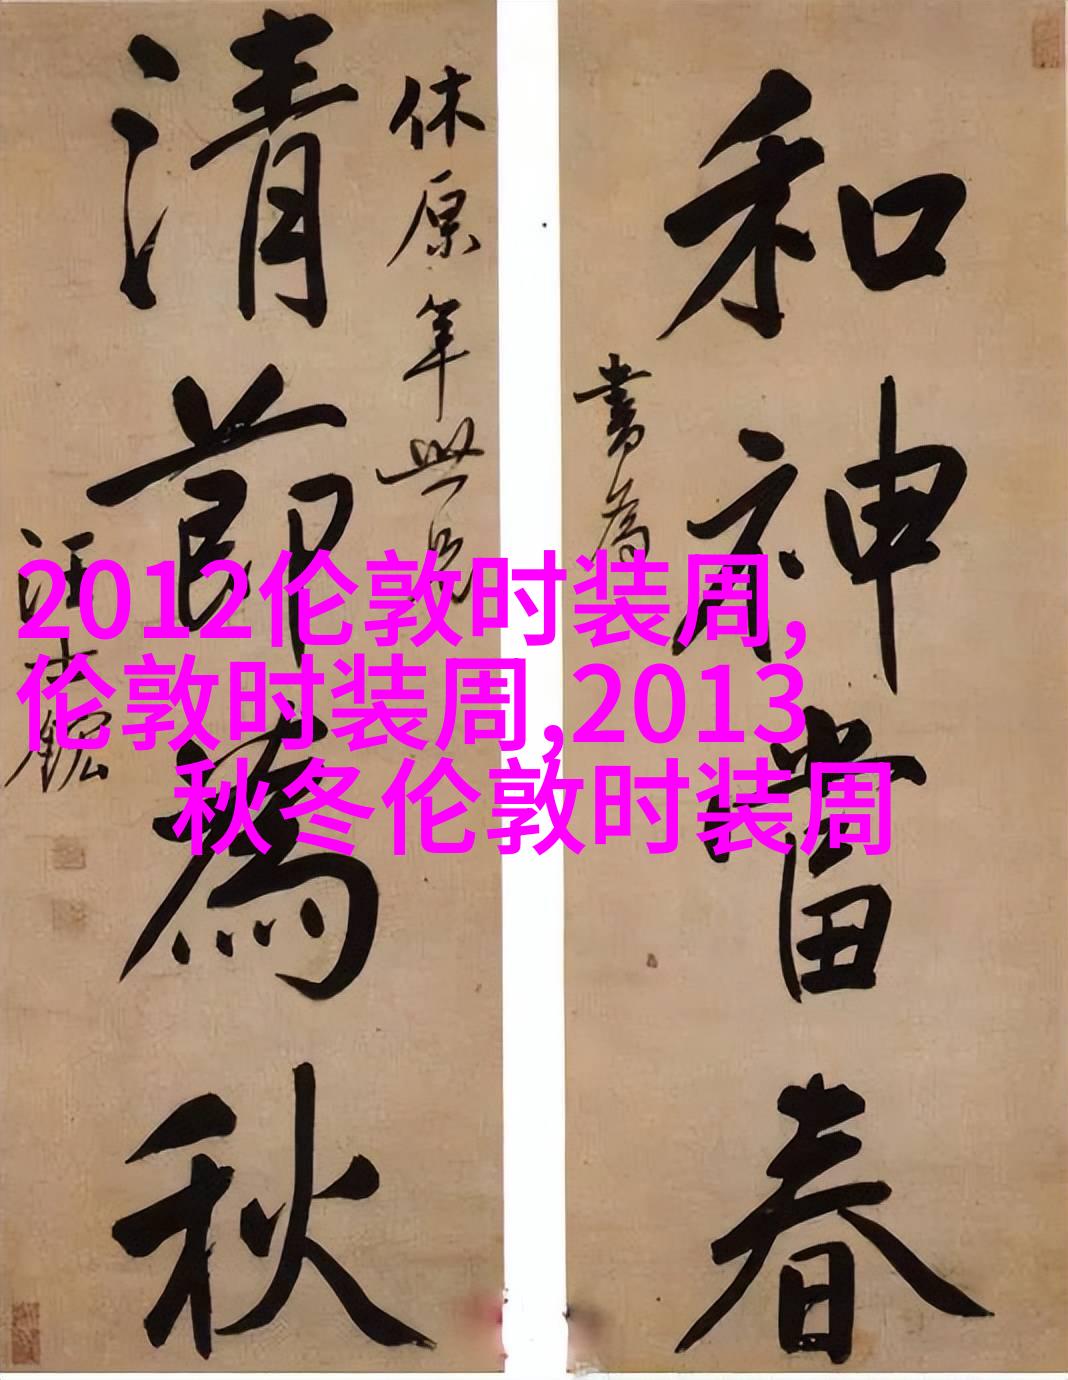 和神當春
書為
休原年世兄
清節為秋
汪士鋐
2012伦敦时装周,
伦敦时装周,2013
秋冬伦敦时装周